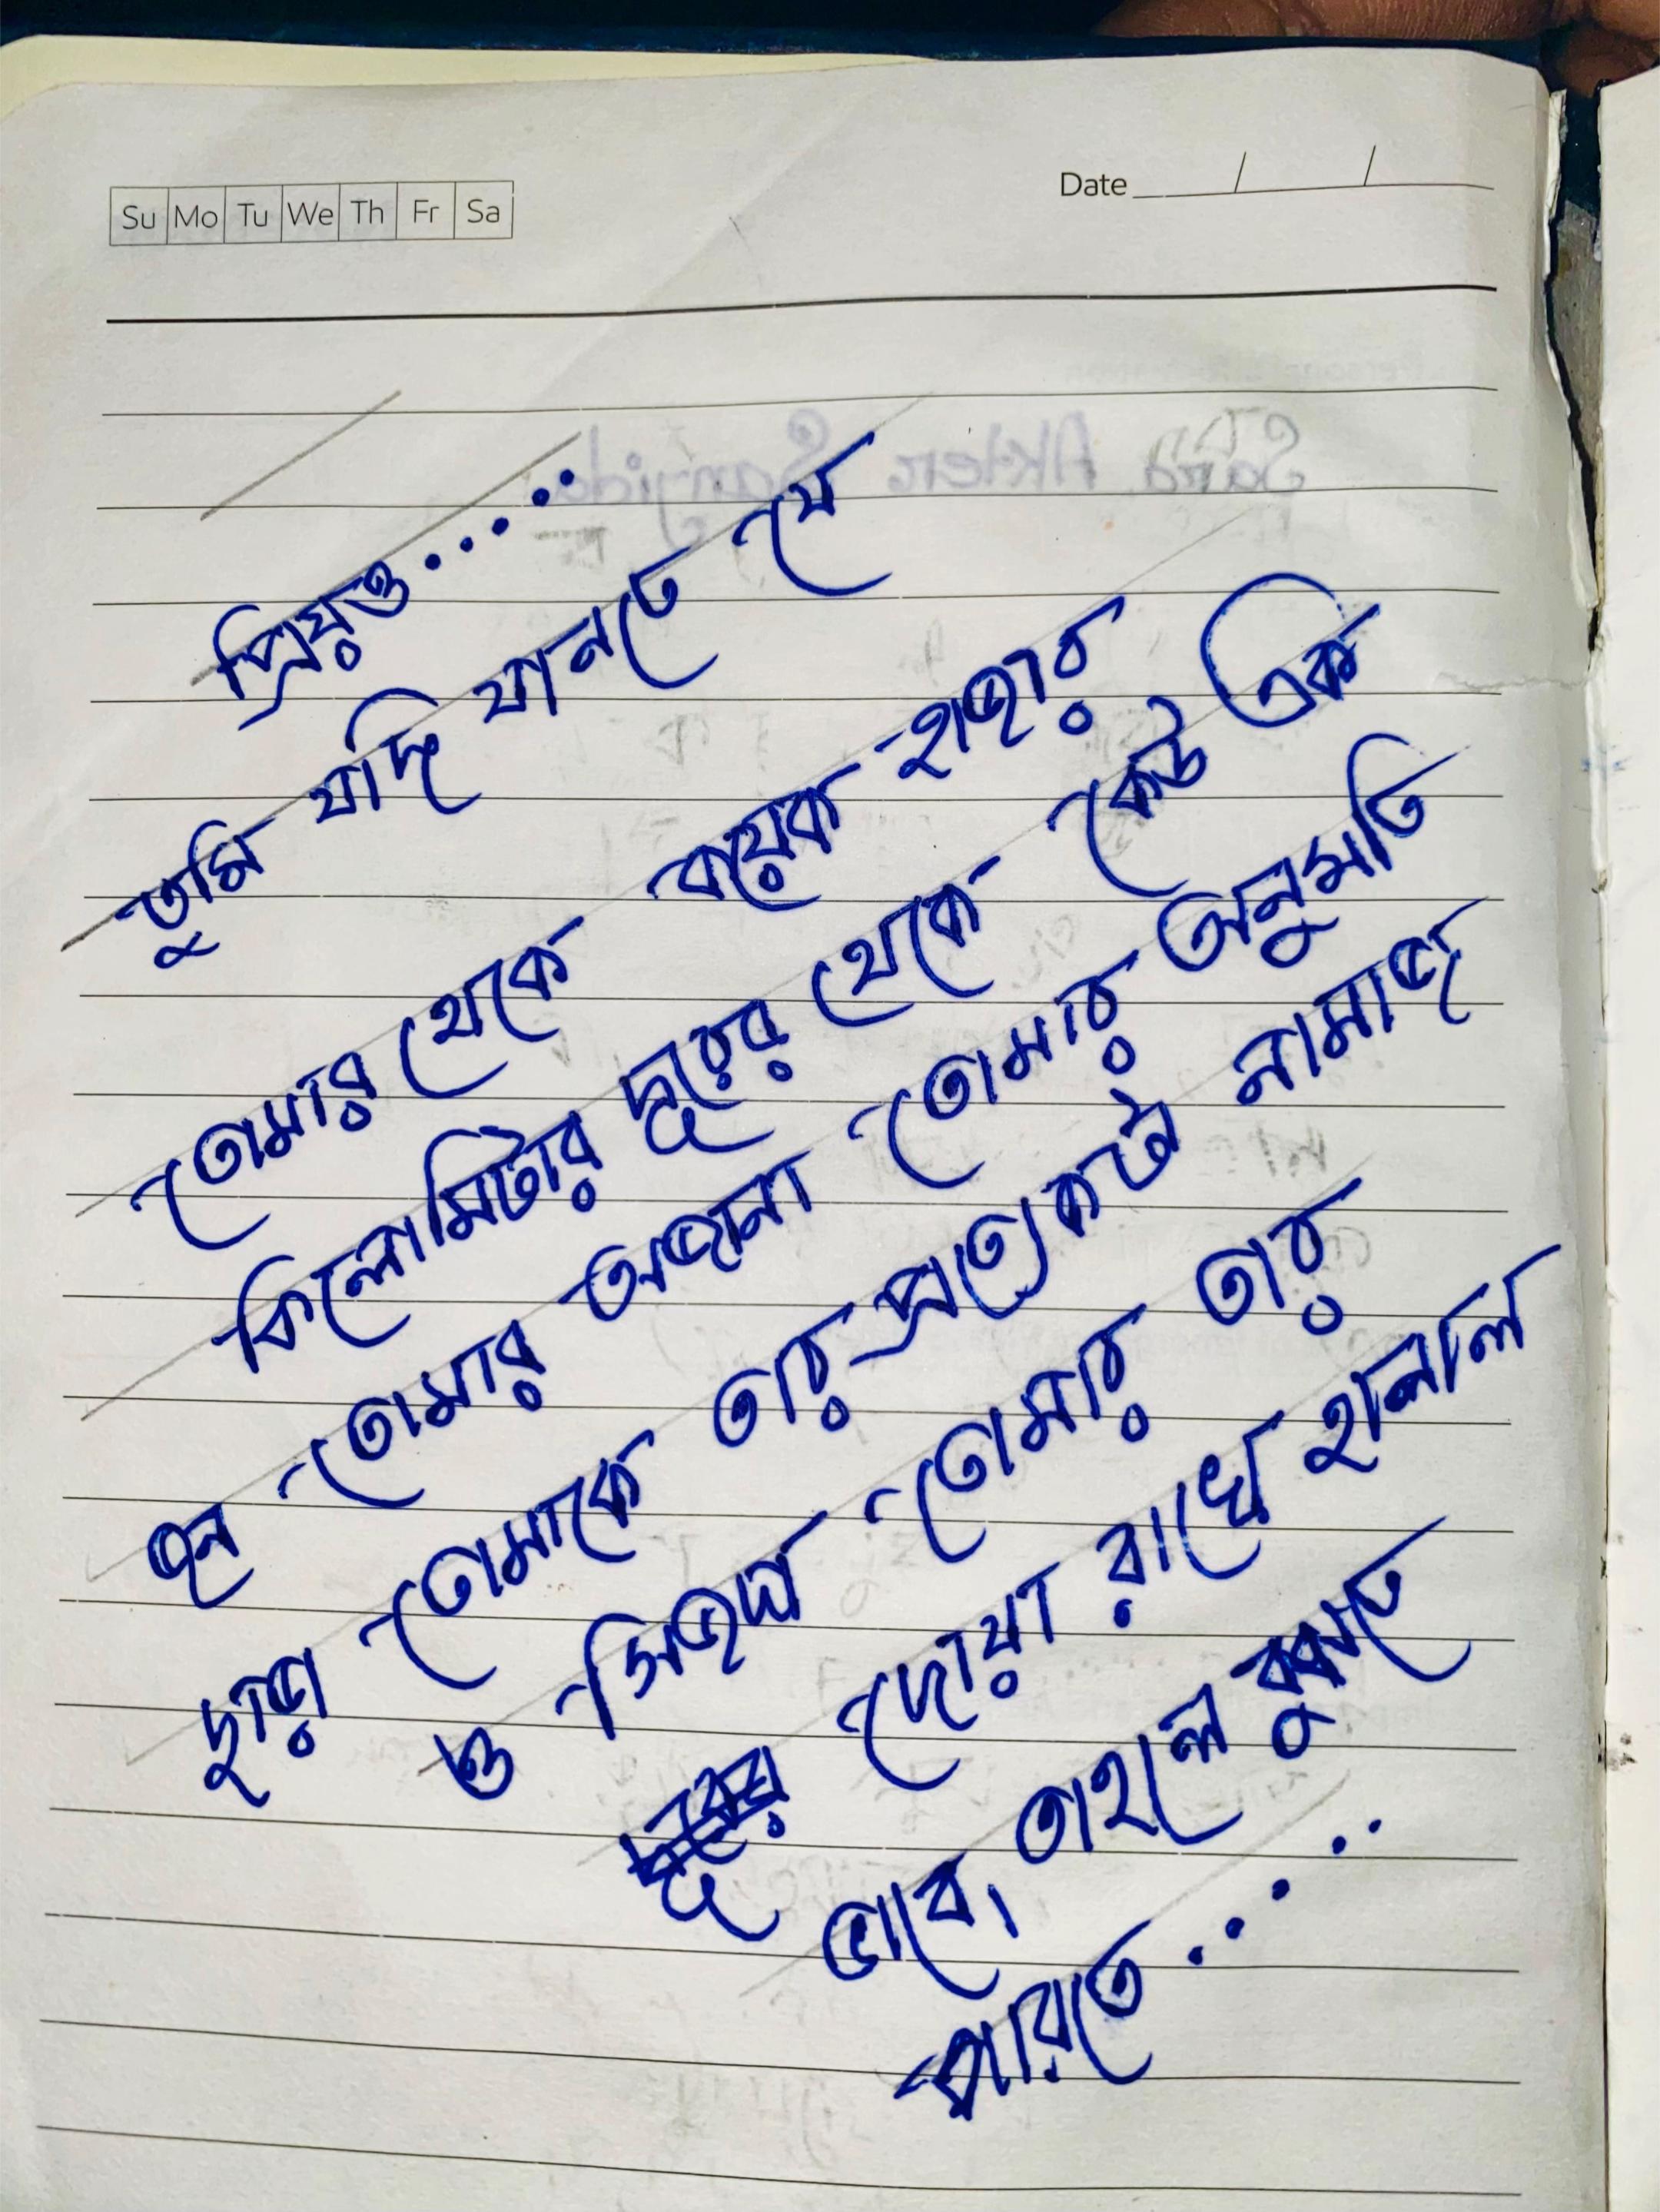 Su Mo Tu We Th Fr Sa
Date / /
প্রিয়ও.....
তুমি যদি যানতে যে
তোমার থেকে কয়েক হাজার
কিলোমিটার দূরের থেকে কেউ এক
জন তোমার অজানা তোমার অনুমতি
ছাড়া তোমাকে তার প্রত্যেকটা নামাজ
ও সিজদা তোমার তার
দোয়া রাখে হালাল
ভাবে। তাহলে বুঝতে
পারতে.....